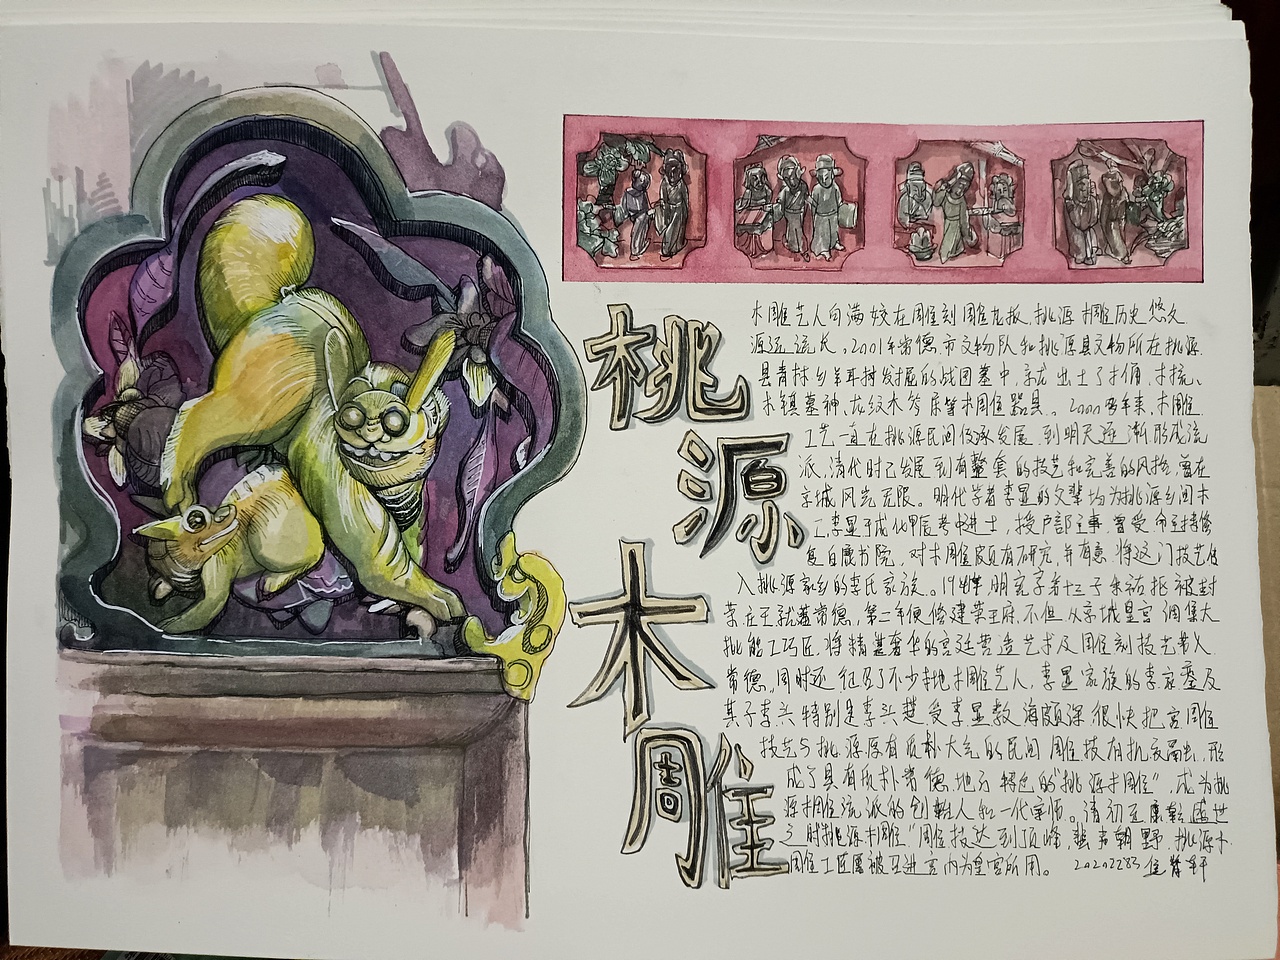 桃源木雕
木雕艺人向满姣在雕刻雕花板。桃源木雕历史悠久
源远流长。2001年常德市文物队和桃源县文物所在桃源
县青林乡羊耳村发掘的战国墓中,就出土了木俑、木梳、
木镇墓神、龙纹木 等木雕器具。2000多年来,木雕
工艺一直在桃源民间传承发展,到明天逐渐形成流
派,清代时已发展到有整套的技艺和完善的风格,曾在
京城风光无限。明代学者李显的父辈均为桃源乡间木
工,李显于成化甲辰考中进士,授户部主事,曾受命主持修
复白鹿书院,对木雕颇有研究,并有意将这门技艺传
入桃源家乡的李氏家族。 明宪宗第十三子朱祐枢被封
荣庄王就藩常德,第二年便修建荣王府,不但从京城皇宫调集大
批能工巧匠,将精湛奢华的宫廷营造艺术及雕刻技艺带入
常德,同时还征召了不少本地木雕艺人,李显家族的李家 及
其子李兴特别是李兴楚受李显教诲颇深,很快把宫雕
技艺与桃源原有质朴大气的民间雕技有机交融,形
成了具有质朴常德地方特色的"桃源木雕",成为桃
源木雕流派的创始人和一代宗师。清初至康乾盛世
之时桃源木雕"雕技达到顶峰,蜚声朝野,桃源木
雕工匠屡被召进宫内为皇宫所用。 20202283